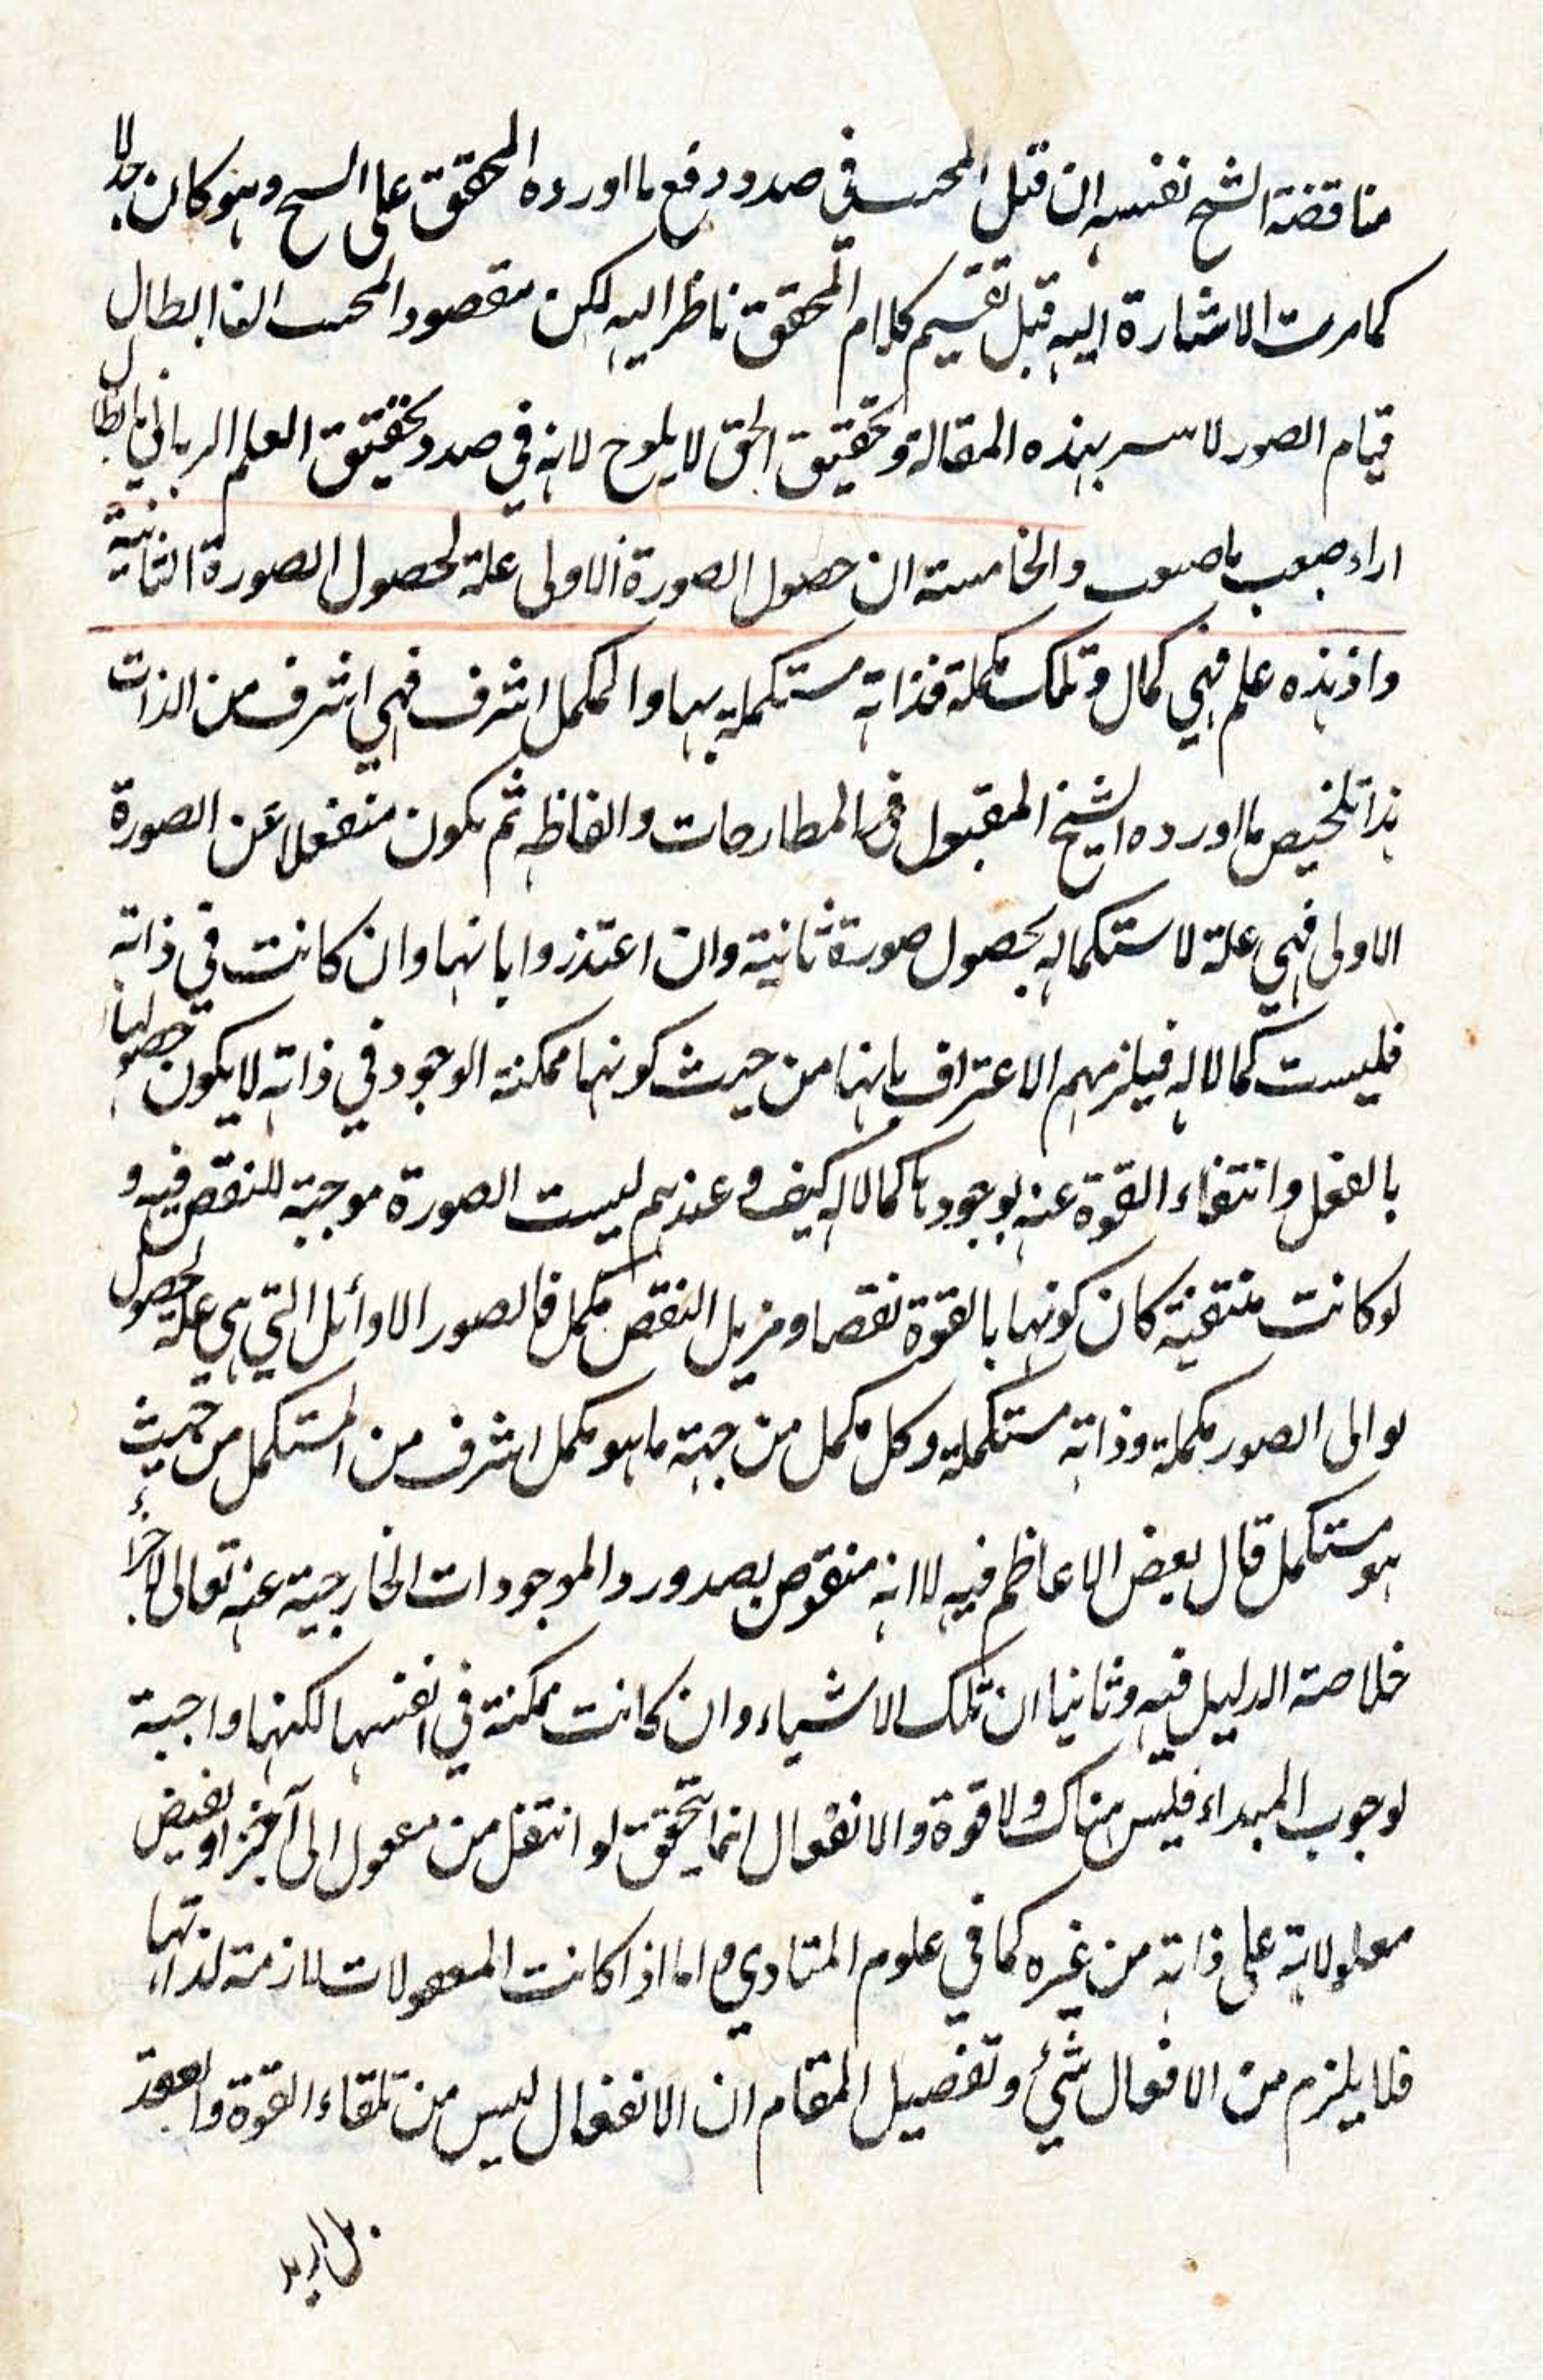 مناقضة الشيخ نفسه ان قبل المحسب في صدد دفع ما اورده المحقق على السيح وهو كان جدلا
كما مرت الاشارة اليه قبل تقسيم كلام المحقق ناظر اليه لكن مقصود المحسب ابطال
قيام الصور لا بهذه المقالة وتحقيق الحق لا يلوح لانه في صدد تحقيق العلم الرباني بابطال
اراء والخامسة ان حصول الصورة الاولى علة لحصول الصورة الثانية
واذ هذه علم فهي كمال وتلك مكملة فذاته مستكملة بها والمكمل اشرف فهي اشرف من الذات
هذا تلخيص ما اورده الشيخ المقبول في المطارحات والفاظه ثم يكون منفعلا عن الصورة
الاولى فهي علة لاستكماله بحصول صورة ثانية وان اعتذروا بانها وان كانت في ذاته
فليست كمالا له فيلزمهم الاعتراف بانها من حيث كونها ممكنة الوجود في ذاته لا يكون حصولها
بالفعل وانتفاء القوة عنه بوجودها كمالا له كيف وعندهم ليست الصورة موجبة للنقص فيه و
لو كانت منتفية كان كونها بالقوة نقصا ومزيل النقص مكمل فالصور الاوائل التي هي علة لحصول
توالى الصور مكملة وذاته مستكملة وكل مكمل من جهة ما هو مكمل اشرف من المستكمل من حيث
هو مستكمل قال بعض الاعاظم فيه لا انه منقوص بصدور الموجودات الخارجية عنه تعالى لاجراء
خلاصة الدليل فيه وثانيا ان تلك الاشياء وان كانت ممكنة في انفسها لكنها واجبة
لوجوب المبداء فليس هناك ولا قوة والانفعال انما يتحقق لو انتقل من معقول الى آخر او يفيض
معلولاته على ذاته من غيره كما في علوم المبادي واما اذا كانت المعقولات لازمة لذاتها
فلا يلزم من الانفعال شئ وتفصيل المقام ان الانفعال ليس من تلقاء القوة والفقد
بل اريد